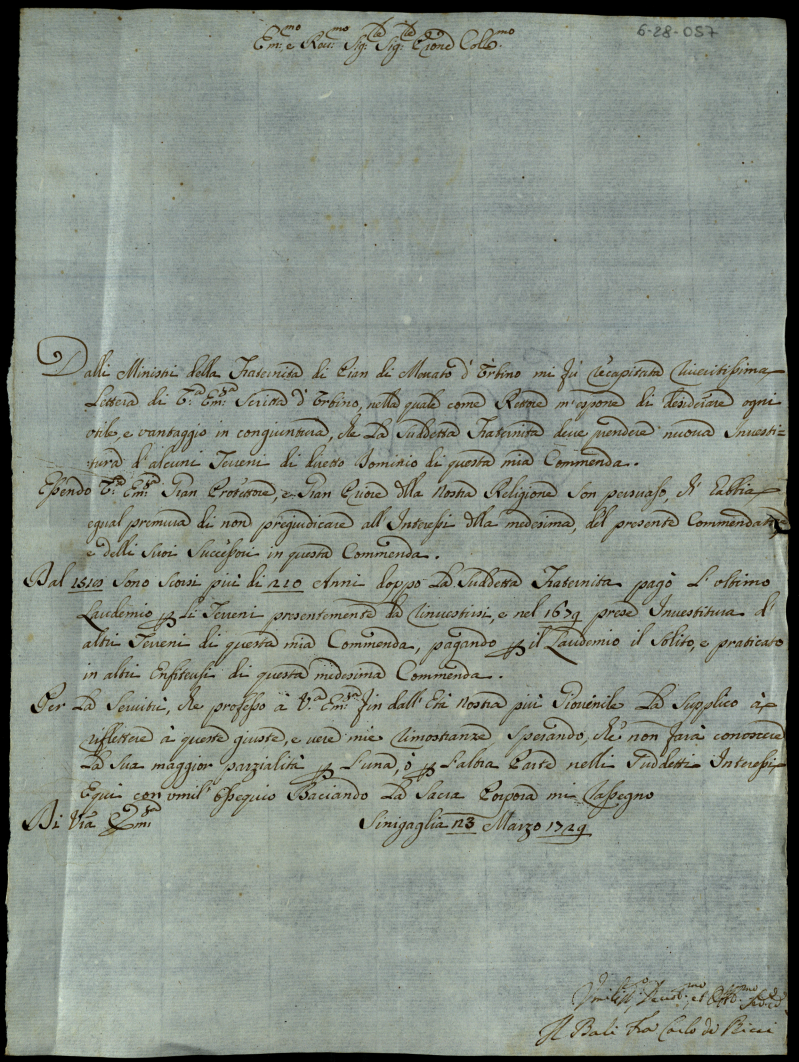 6-28-057
Em:mo e Reu:mo Sig:r Sig:r Prone Coll:mo
Dalli Ministri della Fraternita di Pian di Mercato d'Urbino mi fù recapitata riueritissima
Lettera di V:ra Em:za Scritta d'Urbino, nella quale come Rettore m'espone di desiderare ogni
vtile, e vantaggio in congiuntura, che La Suddetta Fraternita deue prendere nuoua Inuesti=
tura d'alcuni Terreni di diretto Dominio di questa mia Commenda.
Essendo V:ra Em:za Gran Protettore, e Gran Priore della Nostra Religione son persuaso, ch'habbia
egual premura di non pregiudicare all'Interessi della medesima, del presente Commendatre
e delli suoi Successori in questa Commenda.
Dal 1518 sono scorsi più di 210 Anni doppo La Suddetta Fraternita pagò L'vltimo
Laudemio p Li Terreni presentemente da rinuestirsi, e nel 1679 prese Inuestitura d'
altri Terreni di questa mia Commenda, pagando p il Laudemio il Solito, e praticato
in altri Enfiteusi di questa medesima Commenda.
Per La Seruitù, che professo à V:ra Em:za fin dall'Età nostra più Giouenile La Supplico à
riflettere à queste giuste, e vere mie rimostranze, Sperando, che non farà conoscere
La Sua maggior parzialità p l'una, ò p l'altra Parte nelli Suddetti Interessi,
E qui con vmil:o ossequio Baciando La Sacra Porpora mi rassegno
Di V:ra Em:za Sinigaglia 23 Marzo 1729
Vmiliss:o Deuot:mo et Obb:mo Seruo
Il Balì Fra Carlo de Ricci